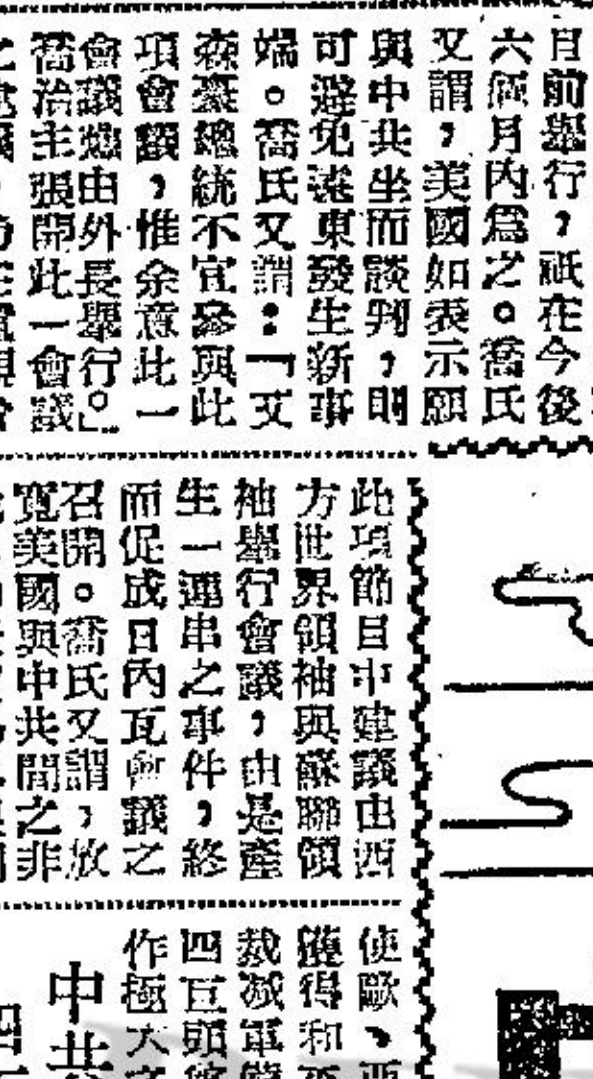 月前舉行，祇在今後
六個月內爲之。喬氏
又謂，美國如表示願
與中共坐而談判，則
可避免遠東發生新事
端。喬氏又謂：「艾
森豪總統不宜參與此
項會議，惟余意此一
會議應由外長舉行。」
喬治主張開此一會議
此項節目中建議由西
方世界領袖與蘇聯領
袖舉行會議，由是產
生一連串之事件，終
而促成日內瓦會議之
召開。喬氏又謂，放
寬美國與中共間之非
使歐、亞
獲得和平
裁減軍備
四巨頭
作極大
中共